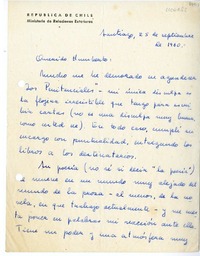 REPUBLICA DE CHILE
Ministerio de Relaciones Exteriores
Santiago, 25 de septiembre
de 1960.
Querido Humberto:
Mucho me he demorado en agradecer
"Los Penitenciales" - mi única disculpa es
la flojera irresistible que tengo para escri-
bir cartas (no es una disculpa muy buena
como usted ve). En todo caso, cumplí su
encargo con puntualidad, entregando los
libros a los destinatarios.
Su poesía (no sé si decir "la poesía")
se mueve en un mundo muy alejado del
mundo de la prosa - al menos, de la no-
vela, en que trabajo actualmente - y me cues-
ta poner en palabras mi reacción ante ella.
Tiene un poder y una atmósfera muy